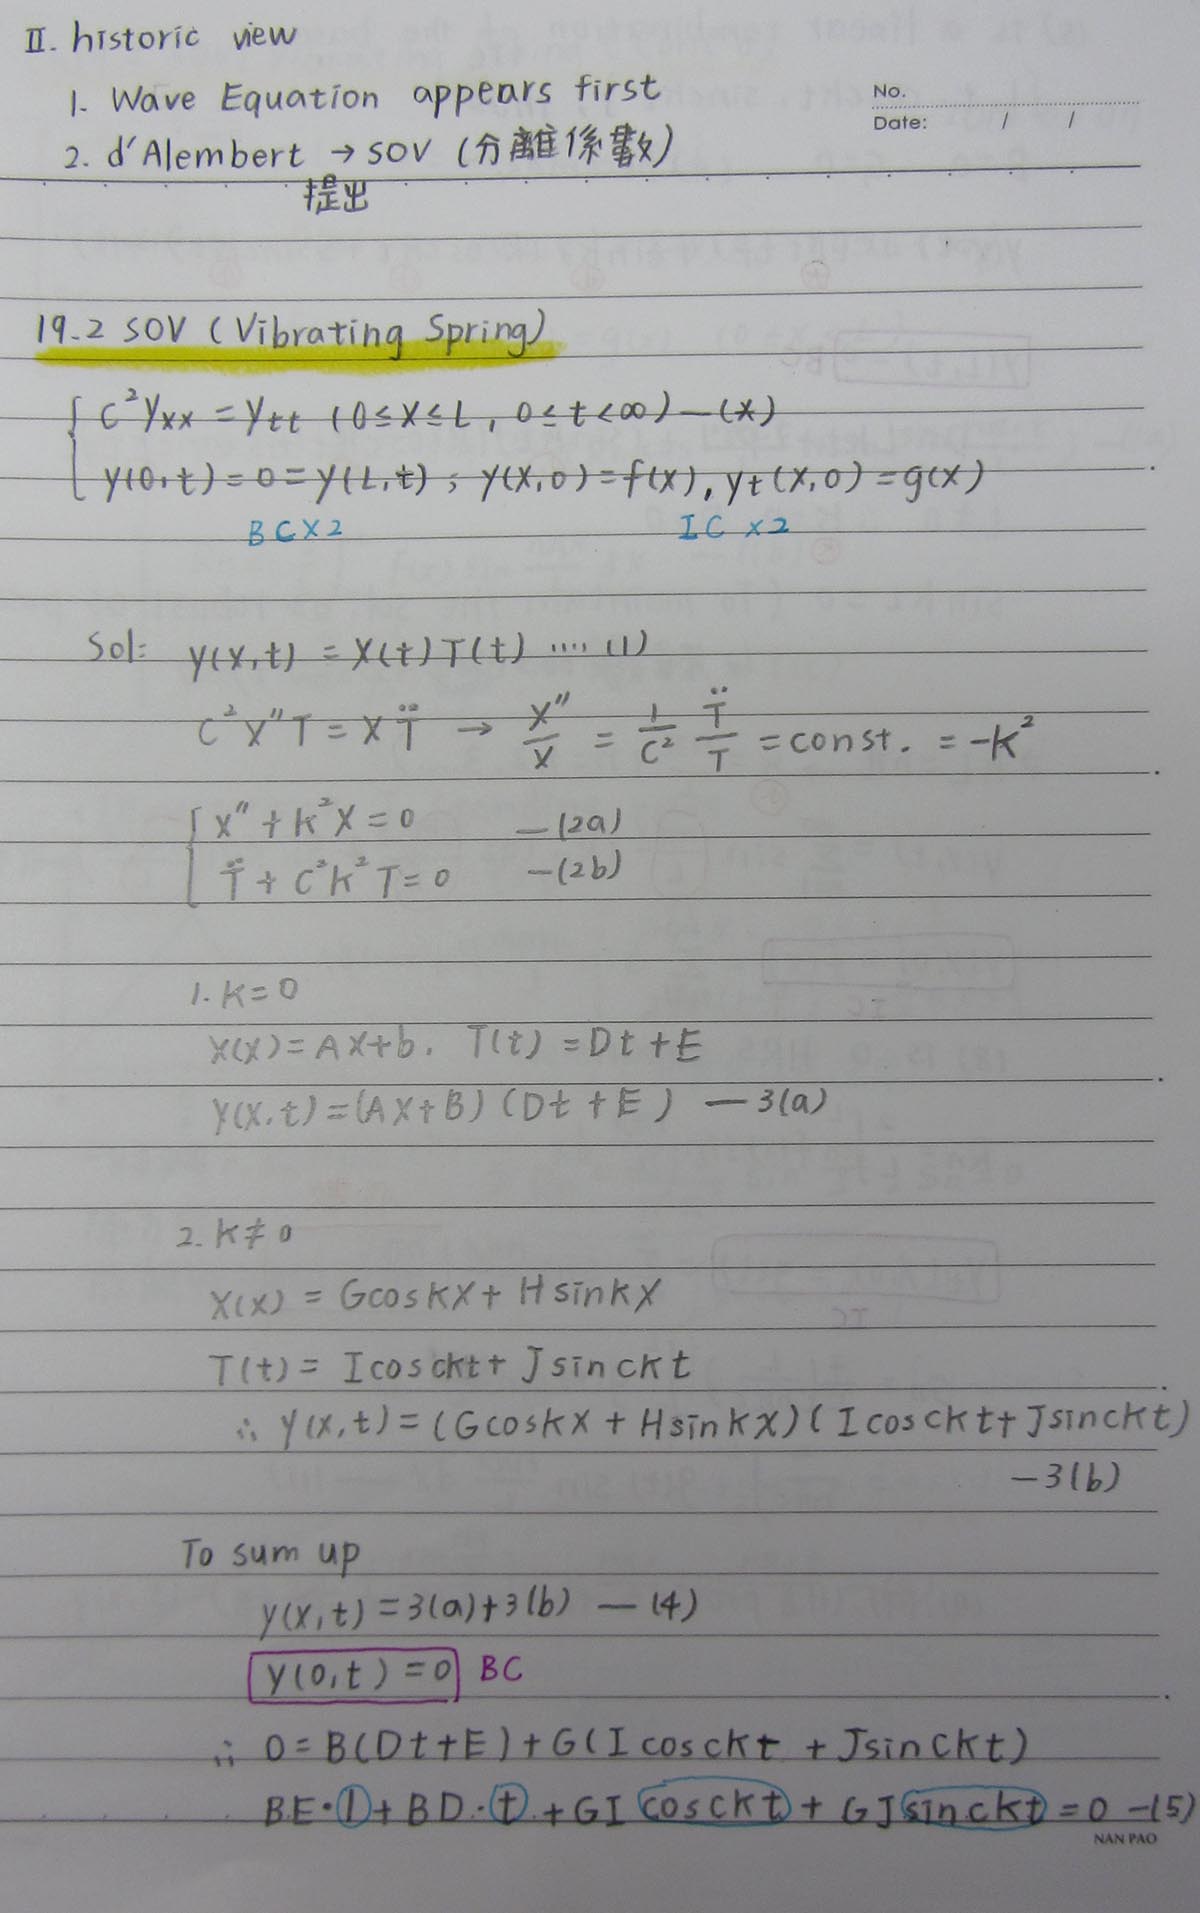 II. historic view
1. Wave Equation appears first
No.
Date: / /
2. d'Alembert → SOV (分離係數)
提出
19.2 SOV (Vibrating Spring)
C²yxx = ytt (0≤x≤L, 0≤t<∞) —(*)
y(0,t)=0=y(L,t); y(x,0)=f(x), yt(x,0)=g(x)
BC×2 IC×2
Sol: y(x,t) = X(t)T(t) ....(1)
C²X"T = XT̈ → X"/X = 1/C² T̈/T = const. = -K²
X"+K²X=0 —(2a)
T̈+C²K²T=0 —(2b)
1. K=0
X(x)=AX+b. T(t)=Dt+E
y(x,t)=(AX+B)(Dt+E) —3(a)
2. K≠0
X(x) = GcosKX+HsinKX
T(t) = Icosckt+Jsinckt
∴ y(x,t)=(GcosKX+HsinKX)(Icosckt+Jsinckt)
—3(b)
To sum up
y(x,t)=3(a)+3(b) —(4)
y(0,t)=0 BC
∴ 0=B(Dt+E)+G(Icosckt+Jsinckt)
BE·1+BD·t+GIcosckt+GJsinckt=0 —(5)
NAN PAO